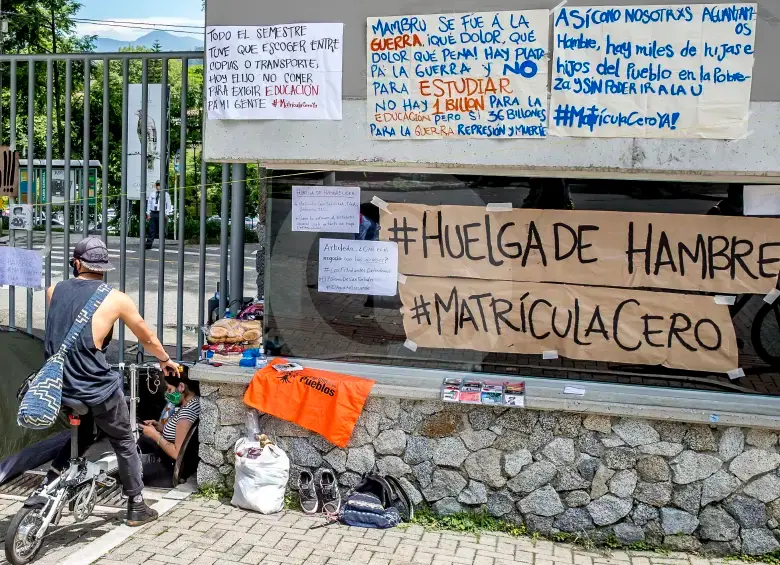 TODO EL SEMESTRE
TUVE QUE ESCOGER ENTRE
COPIAS O TRANSPORTE,
HOY ELIJO NO COMER
PARA EXIGIR EDUCACIÓN
PA MI GENTE #MATRICULACERO YA
MAMBRU SE FUÉ Á LA
GUERRA, ¡QUÉ DOLOR, QUÉ
DOLOR QUE PENA! HAY PLATA
PA LA GUERRA Y NO
PARA ESTUDIAR
NO HAY 1 BILLON PARA LA
EDUCACIÓN PERO SI 36 BILLONES
PARA LA GUERRA REPRESIÓN Y MUERTE
ASÍ COMO NOSOTRXS AGUANTAMOS
HAMBRE, HAY MILES DE HIJAS E
HIJOS DEL PUEBLO EN LA POBRE-
ZA Y SIN PODER IR A LA U
#MATRÍCULACEROYA!
!!!
#HUELGA DE HAMBRE
#MATRÍCULACERO
Pueblos